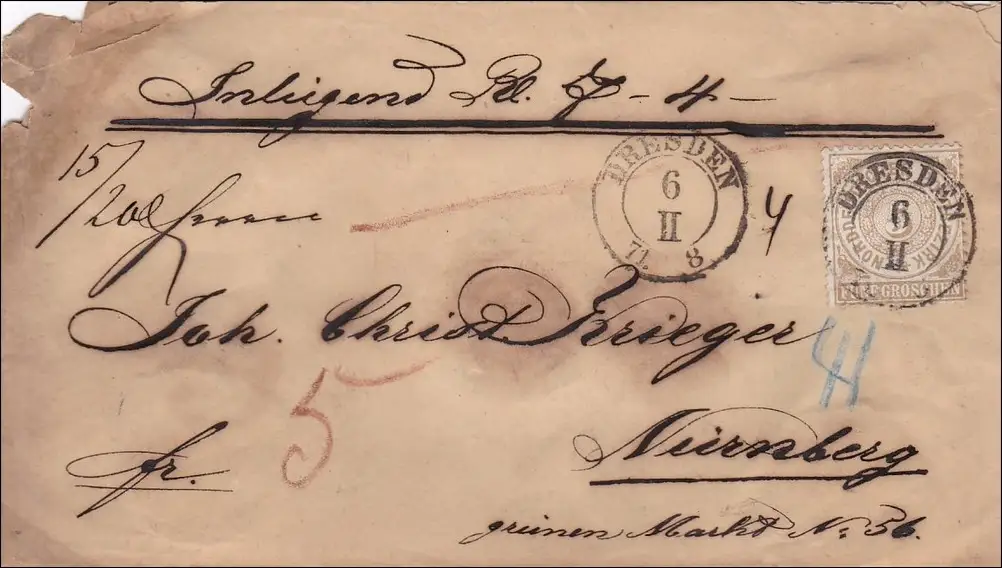 Inliegend Rl. 7 - 4 -
15/20
Herrn
DRESDEN
6
II
71. 8
4
DRESDEN
6
II
FÜNF GROSCHEN
Joh. Christ. Krieger
5
fr.
Nürnberg
grünen Markt No: 56.